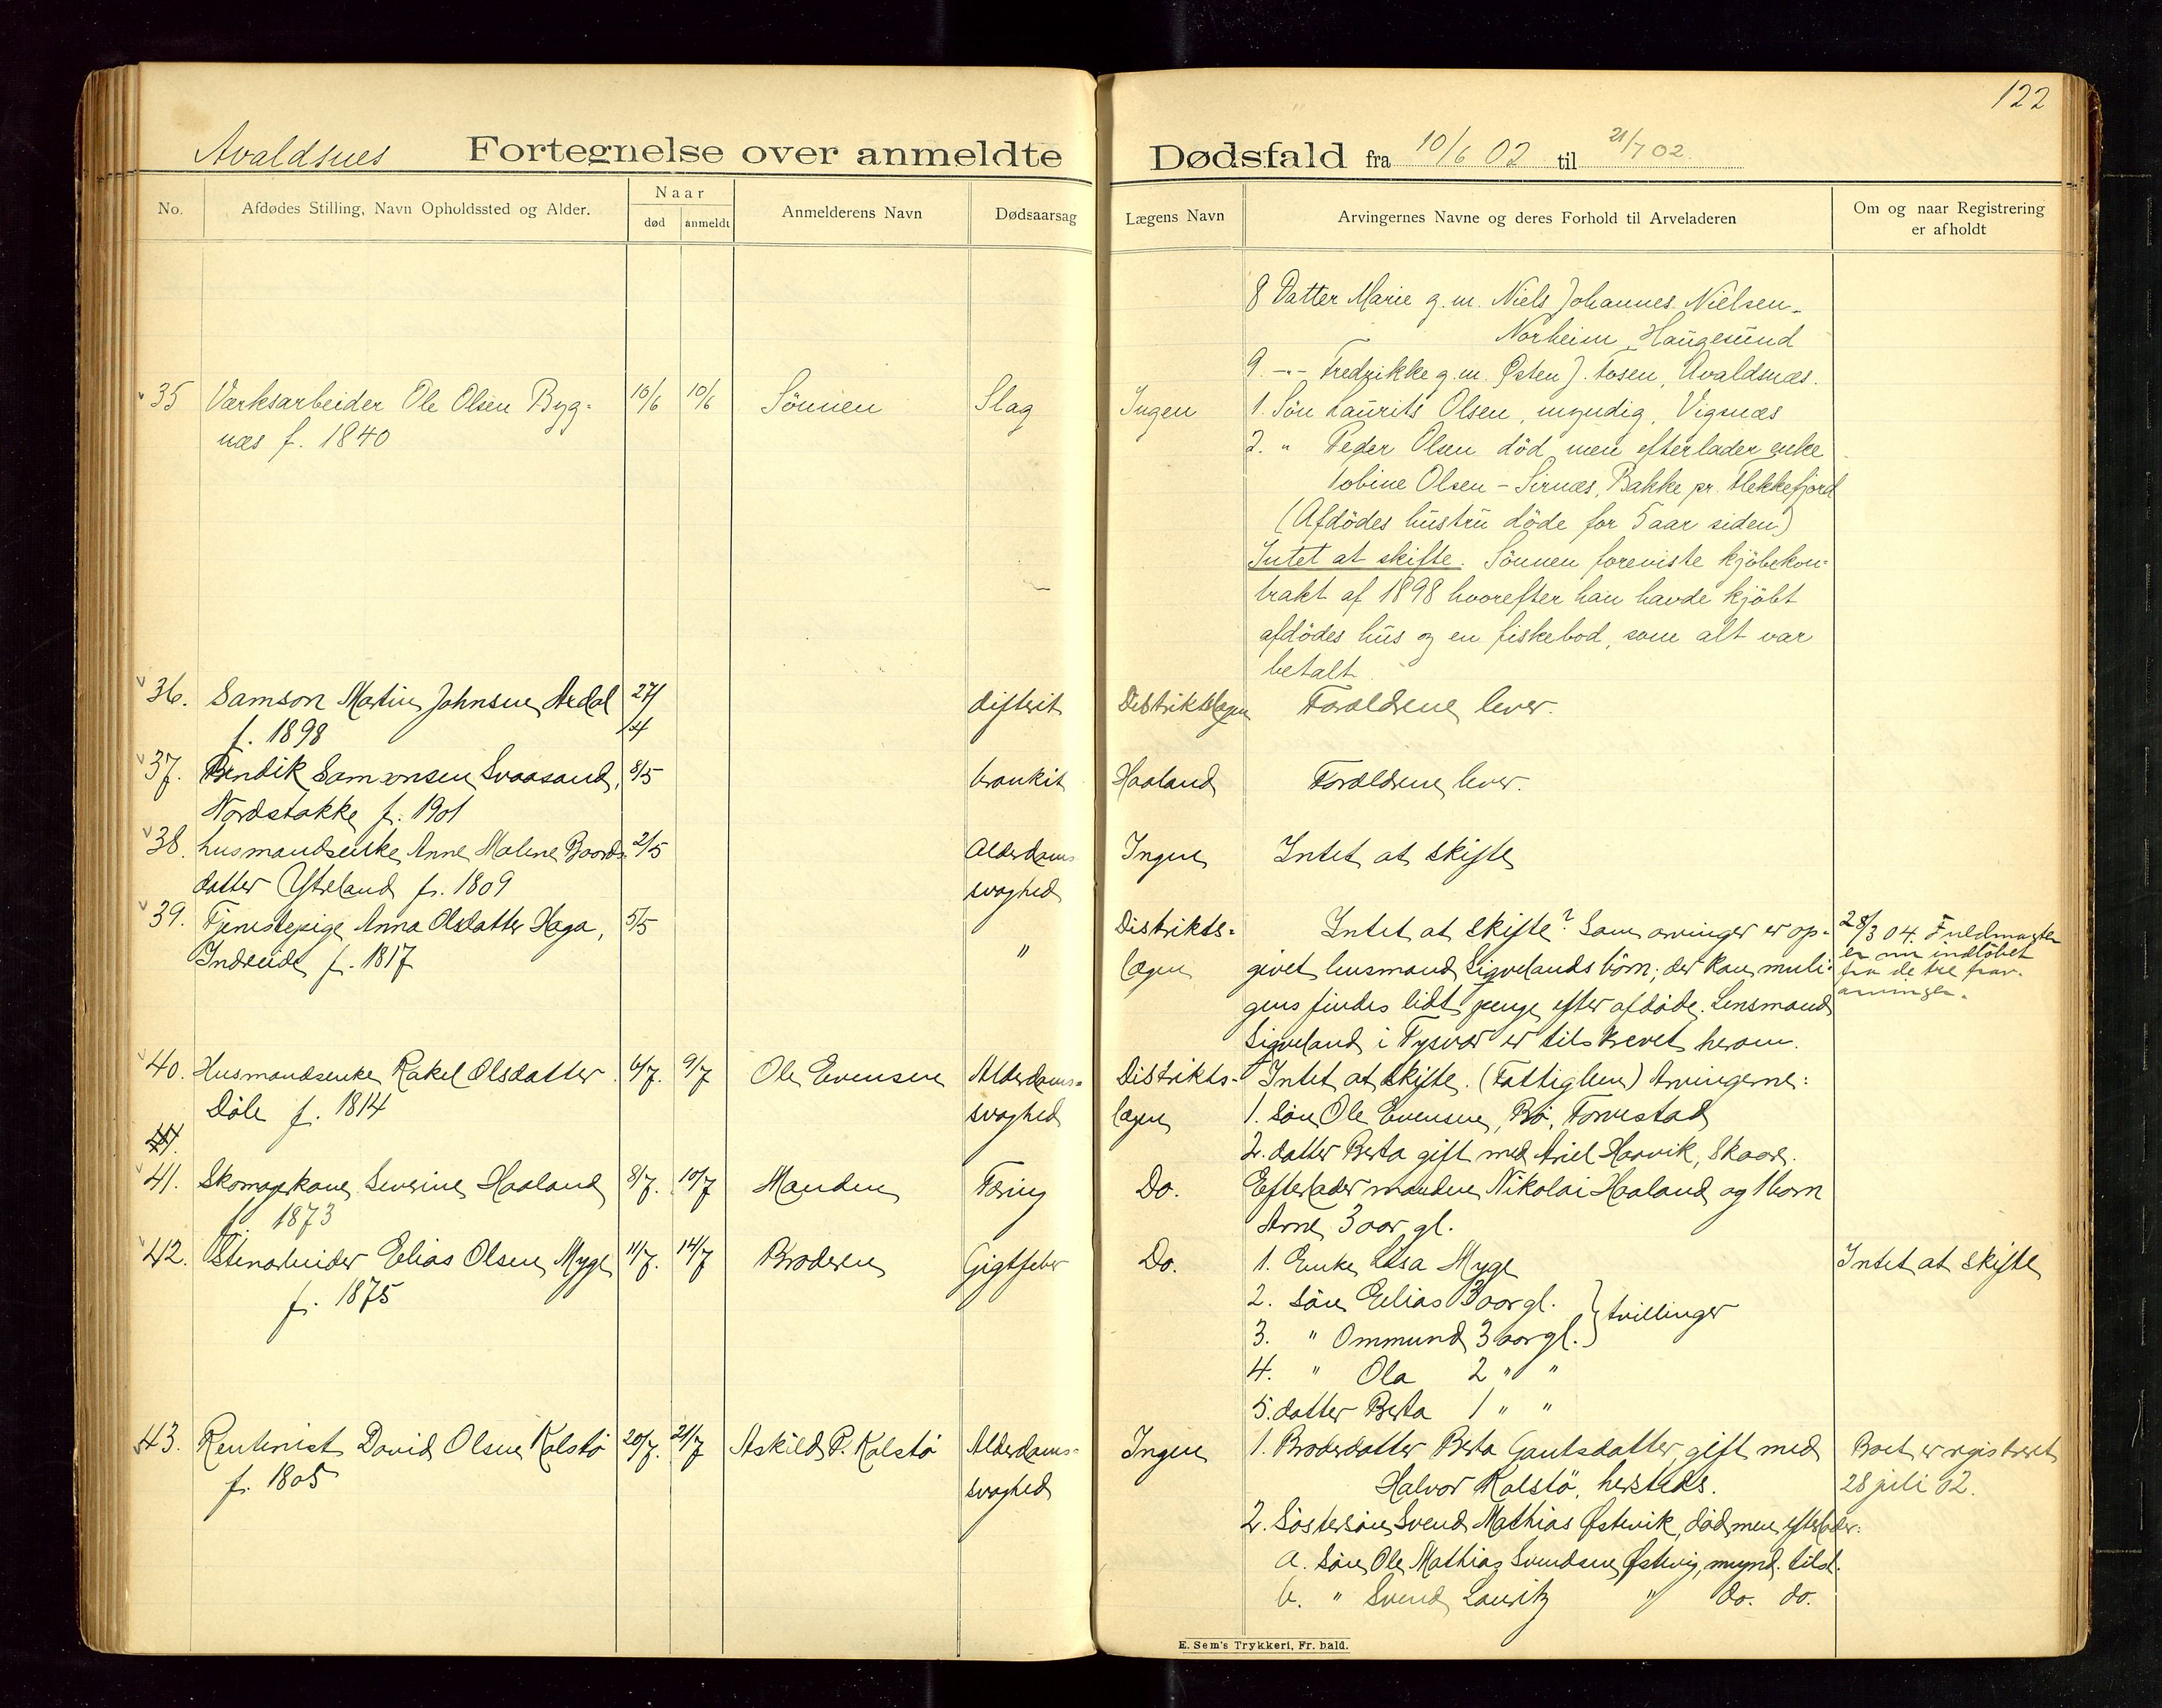 122
Avaldsnes Fortegnelse over anmeldte Dødsfald fra 10/6 02 til 21/7 02
No.
Afdødes Stilling, Navn Opholdssted og Alder.
Naar
død
anmeldt
Anmelderens Navn
Dødsaarsag
Lægens Navn
Arvingernes Navne og deres Forhold til Arveladeren
Om og naar Registrering
er afholdt
8 Datter Marie g.m. Niels Johannes Nielsen-
Norheim, Haugesund
9 -"- Fredrikke g.m. Østen J. Fosen, Avaldsnæs.
35 Værksarbeider Ole Olsen Byg- 10/6 10/6 Sönnen Slag Ingen 1. Sön Laurits Olsen, myndig, Vigsnæs
næs f. 1840
2. " Peder Olsen död, men efterlader enke
Tobine Olsen - Sirnæs, Bakke pr. Flekkefjord
(Afdödes hustru döde for 5 aar siden)
Intet at skifte. Sönnen foreviste kjöbekon-
trakt af 1898 hvorefter han havde kjöbt
afdödes hus og en fiskebod, som alt var
betalt.
36. Samson Martin Johnsen Ardal 27/4 difterit Distriktslægen Forældrene lever.
f. 1898
37. Bendik Samsonsen Svaasand, 8/5 bronkit Haaland Forældrene lever.
Nordstokke f. 1901
38. husmandsenke Anne Malene Baards- 2/5 Alderdoms- Ingen Intet at skifte
datter Ytreland f. 1809 svaghed
39. Tjenestepige Anna Olsdatter Haga, 5/5 " Distrikts- Intet at skifte? Som arvinger er op-
Indreide f. 1817 lægen givet husmand Sigvelands börn; der kan muli-
gens findes lidt penge efter afdöde. Lensmand
Sigveland i Tysvær er tilskrevet herom.
28/3 04. Fuldmagter
er nu indlöbet
fra de tre
arvinger.
40. Husmandsenke Rakel Olsdatter 6/7. 9/7 Ole Evensen Alderdoms- Distrikts- Intet at skifte. (Fattiglem) Arvingerne:
Döle f. 1814 svaghed lægen 1. sön Ole Evensen, Bö, Torvestad
2. datter Berta gift med Ariel Hauvik, Skaare.
41.
41. Skomagerkone Severine Haaland 8/7. 10/7 Manden Tæring Do. Efterlader manden Nikolai Haaland og 1 barn
f. 1873 Arne 3 aar gl.
42. Stenarbeider Elias Olsen Myge 11/7. 14/7 Broderen Gigtfeber Do. 1. Enke Lisa Myge Intet at skifte
f. 1875
2. sön Elias 3 aar gl. } tvillinger
3. " Ommund 3 aar gl.
4. " Ola 2 " "
5. datter Berta 1 " "
43. Rentenist David Olsen Kolstö 20/7. 21/7 Askild P. Kolstö Alderdoms- Ingen 1. Broderdatter Berta Gautsdatter, gift med Boet er registreret
f. 1805 svaghed Halvor Kolstö, hersteds. 28 juli 02.
2. Söstersön Svend Mathias Østevik, död, men efterlader:
a. sön Ole Mathias Svendsen Østevig, mynd. tilst.
b. " Svend Lauritz " do. do.
E. Sem's Trykkeri, Fr. hald.